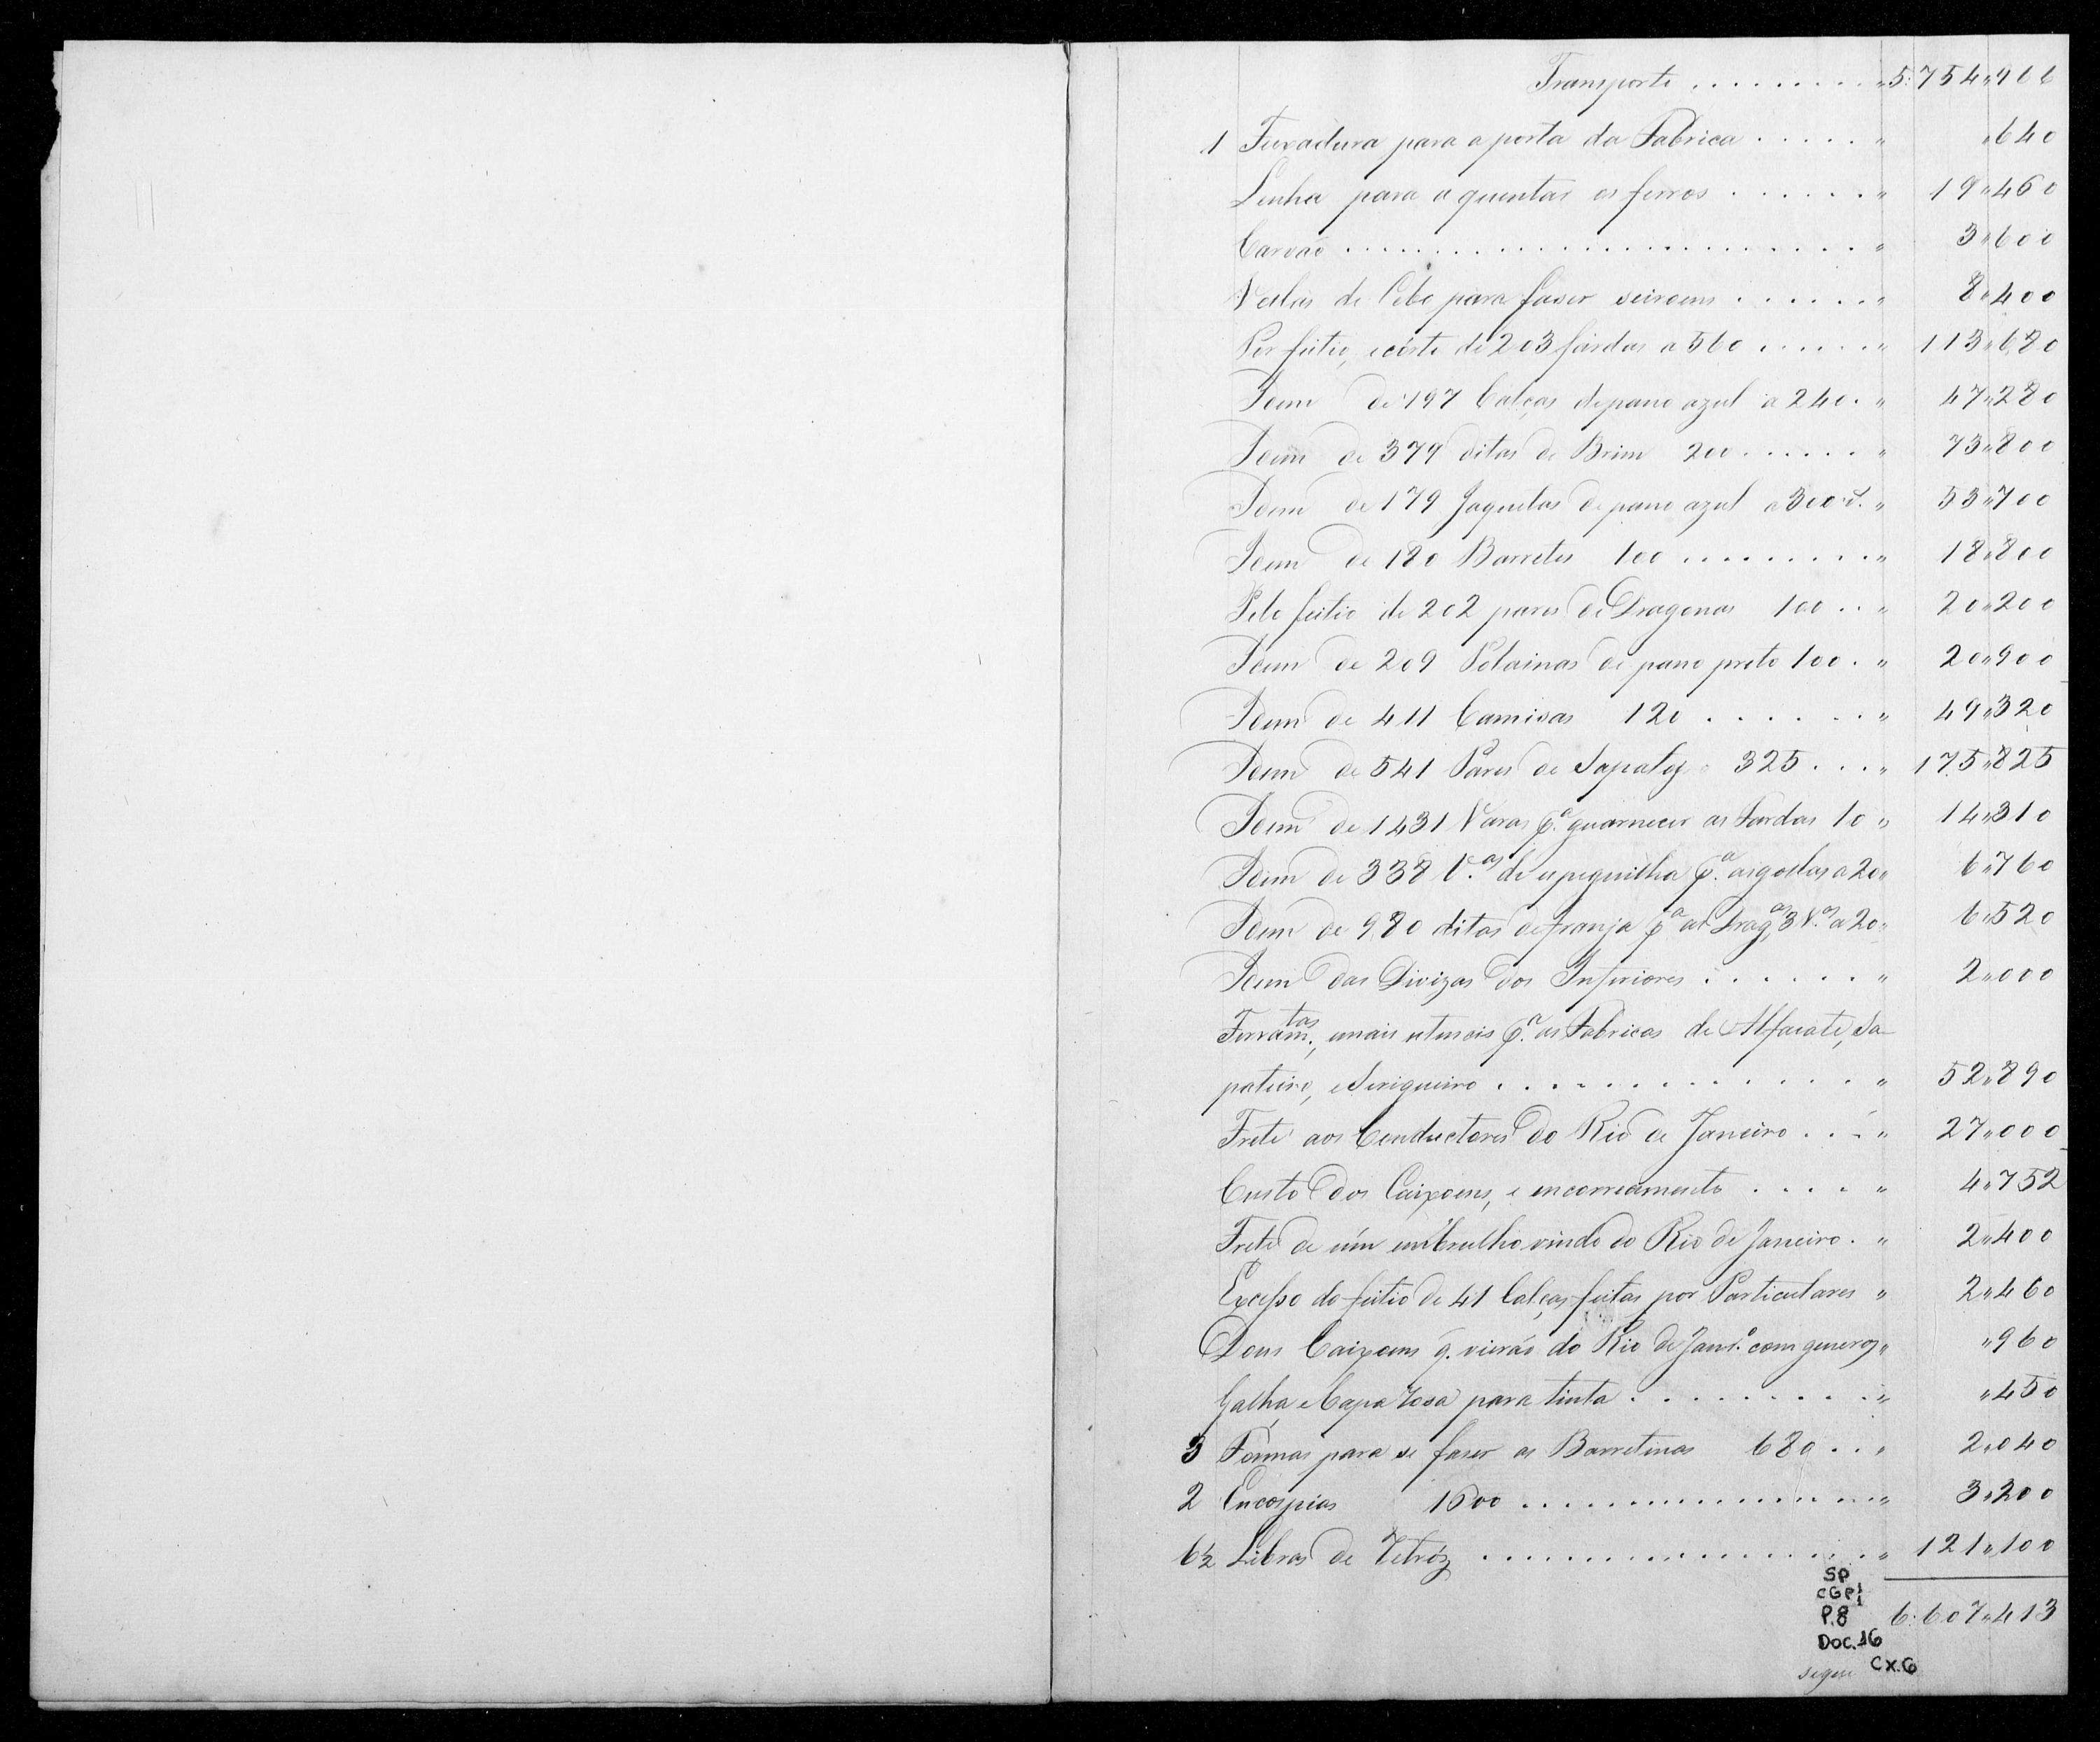 Transporte . . . . . . . . . „ 5:754„966
1 Fexadura para a porta da Fabrica . . . . . „ „640
Lenha para a quentar os ferros . . . . . . „ 19„460
Carvaõ . . . . . . . . . . . . . . . . . . . . „ 3„600
Vellas de Cebo para faser seiroens . . . . . . „ 8„400
Por feitio, e córte de 203 fardas a 560 . . . . . . „ 113„680
Idem de 197 Calças de pano azul a 240 . „ 47„280
Idem de 379 ditas de Brim 200 . . . . . . „ 73„800
Idem de 179 Jaquetas de pano azul a 300 r.s „ 53„700
Idem de 180 Barretes 100 . . . . . . . . . „ 18„800
Pelo feitio de 202 pares de Dragonas 100 . . „ 20„200
Idem de 209 Polainas de pano preto 100 . „ 20„900
Idem de 411 Camisas 120 . . . . . . . „ 49„320
Idem de 541 Pares de Sapatos 325 . . . „ 175„825
Idem de 1431 Varas p.a guarnecer as Fardas 10 „ 14„310
Idem de 338 V.as de espiguilha p.a as golas a 20 „ 6„760
Idem de 980 ditas de franja p.a as Drag.as 3 V.as a 20 „ 6„520
Idem das Divizas dos Inferiores . . . . . . „ 2„000
Ferram.tas, e mais utencis p.a as Fabricas de Alfaiate, Sa-
pateiro, e Serigueiro . . . . . . . . . . . . . . „ 52„890
Frete aos Conductores do Rio de Janeiro . . . . „ 27„000
Custo dos Caixoens, e encorreamento . . . . . „ 4„752
Frete de úm embrulho vindo do Rio de Janeiro . „ 2„400
Excesso do feitio de 41 Calças feitas por Particulares „ 2„460
Dous Caixoens q. vieraõ do Rio de Janr.o com generos „ „960
Galha, e Capa roza para tinta . . . . . . . . . . „ „450
3 Formas para se faser as Barretinas 680 . . „ 2„040
2 Encospias 1600 . . . . . . . . . . . . . . . . . . „ 3„200
6½ Libras de Retróz . . . . . . . . . . . . . . . . . „ 121„100
6:607„413
SP
CGP1
P.8
Doc.16
Cx.6
segue